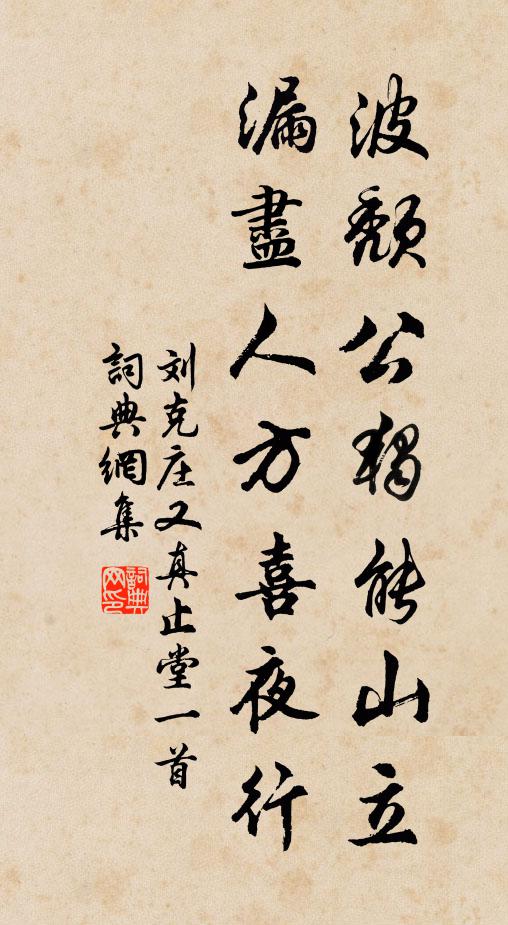 波頹公獨能山立
漏盡人方喜夜行
刘克庄又真止堂一首
詞典網集
詞典网印